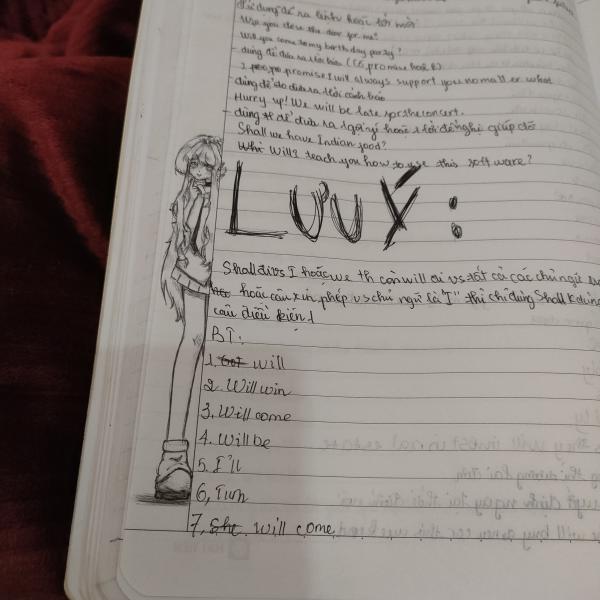 sử dụng để ra lệnh hoặc lời mời
Will you close the door for me?
Will you come to my birthday party?
- dùng để đưa ra lời hứa (Có promise hoặc k)
I promise I will always support you no matter what
-dùng để đưa ra lời cảnh báo
Hurry up! We will be late for the concert.
- dùng để đưa ra 1 gợi ý hoặc 1 lời đề nghị giúp đỡ
Shall we have Indian food?
Will I teach you how to use this software?
LƯU Ý:
Shall đi vs I hoặc we th còn will đi vs tất cả các chủ ngữ
hoặc câu xin phép vs chủ ngữ là "I" thì chỉ dùng Shall k dùng
câu điều kiện 1
BT:
1. Got will
2. Will win
3. Will come
4. Will be
5. I'll
6, Turn
7, She will come